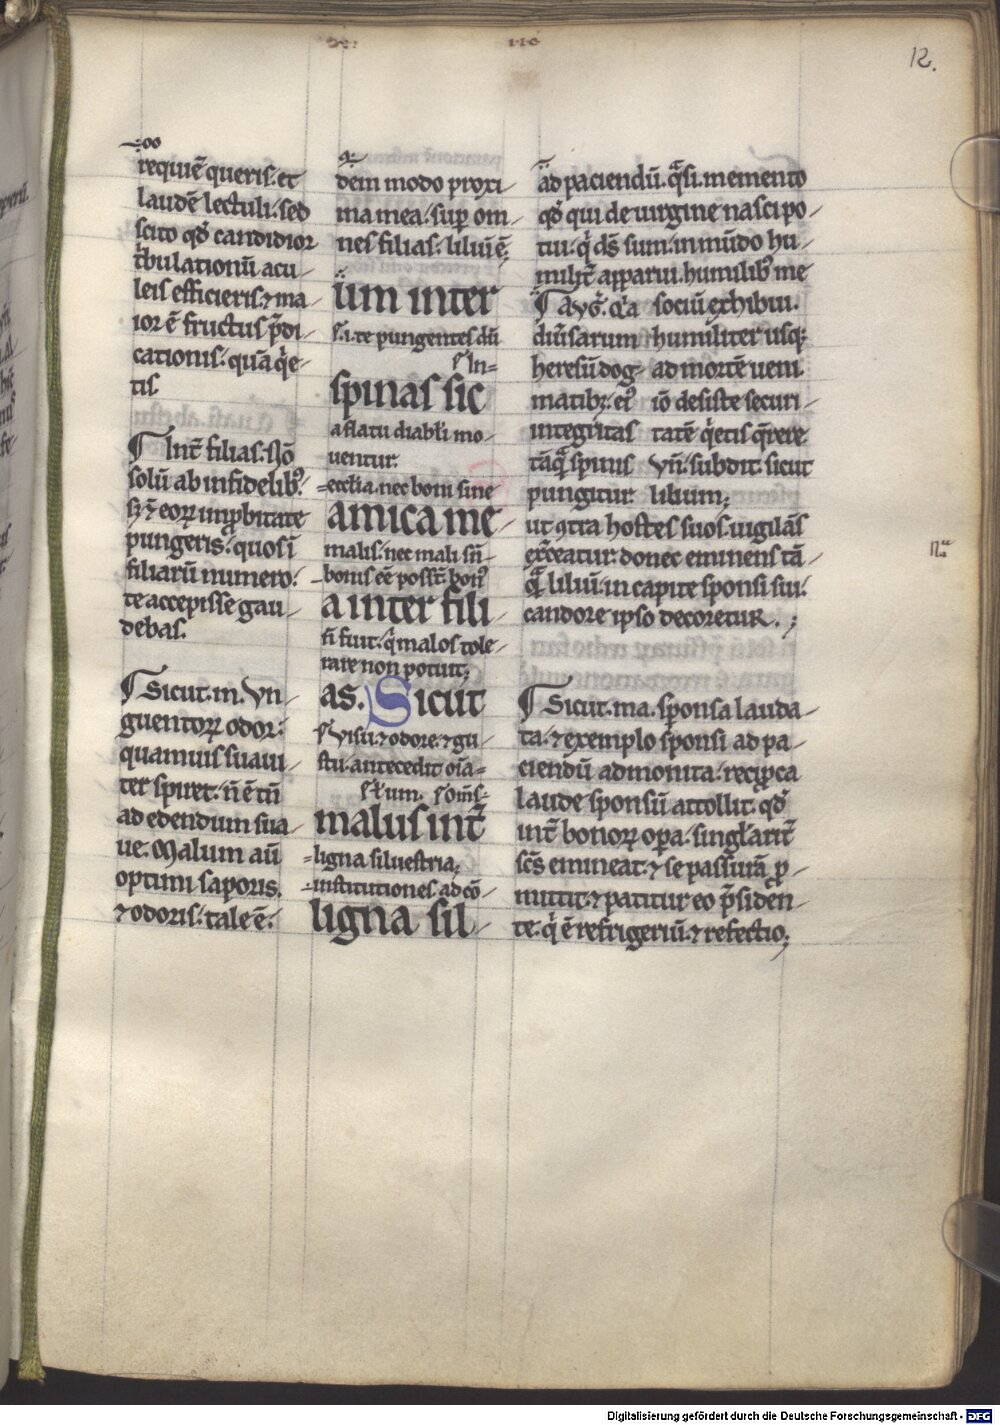 12.
requiē queris. et
laudē lectuli. sed
scito qđ candidior
t͛bulationū acu-
leis efficieris. ⁊ ma-
ior ē fructus p̄di-
cationis. quā q̇e-
tis
Int͛ filias. Nō
solū ab infidelibꝰ.
sꝫ ⁊ eoꝝ inꝓbitate
pungeris. quos ī
filiarū numero.
te accepisse gau-
debas.
Sicut. m. Vn
guentoꝝ odor.
quamuis suaui-
ter spiret. n̄ ē tn̄
ad edendum sua-
ue. Malum aū
optimi saporis.
⁊ odoris. tale ē.
dem modo proxi-
ma mea. sup̲ om-
nes filias. liliū ē;
ium inter
s. i. te pungentes dū
In-
spinas sic
a flatu diaboli mo-
uentur.
=ecclia. nec boni sine
amica me-
malis. nec mali sn̄-
bonis eē possͭ. bonꝰ
a inter fili
n̄ fuit. q̇ malos tole-
rare non potuit;
as. Sicut
Visu. ⁊ odore. ⁊ gu-
stu. antecedit oīa=
malus int͛
=ligna siluestria;
-institutiones. ad cō-
ligna sil-
ad paciendū. q̄si. memento
qđ qui de uirgine nasci po-
tui. q̇ ds̄ sum. in mūdo hu-
milit͛ apparui. humilibꝰ me
Aug̅. Q'a sociū exhibui.
diūsarum humiliter usqꝫ
heresū dog- ad mortē ueni.
matibꝫ. eiꝰ iō desiste securi-
integritas tatē q̇etis q̄rere
tāq̄ spinis Vn̄. subdit. sicut
pungitur lilium;
ut ɔtra hostes suos. uigilās
ex͛ceatur. donec eminens tā-
q̄ liliū. in capite sponsi sui.
candore ipso decoretur.;
Sicut. ma. sponsa lauda-
ta. ⁊ exemplo sponsi ad pa-
ciendū admonita. recip̲ca
laude sponsū attollit. qđ
int͛ bonoꝝ op̲a. singlarit͛
scs̄ emineat. ⁊ se passurā ꝓ-
mittit. ⁊ patitur eo p̄siden-
te. q̇ ē refrigeriū. ⁊ refectio;
Digitalisierung gefördert durch die Deutsche Forschungsgemeinschaft - DFG